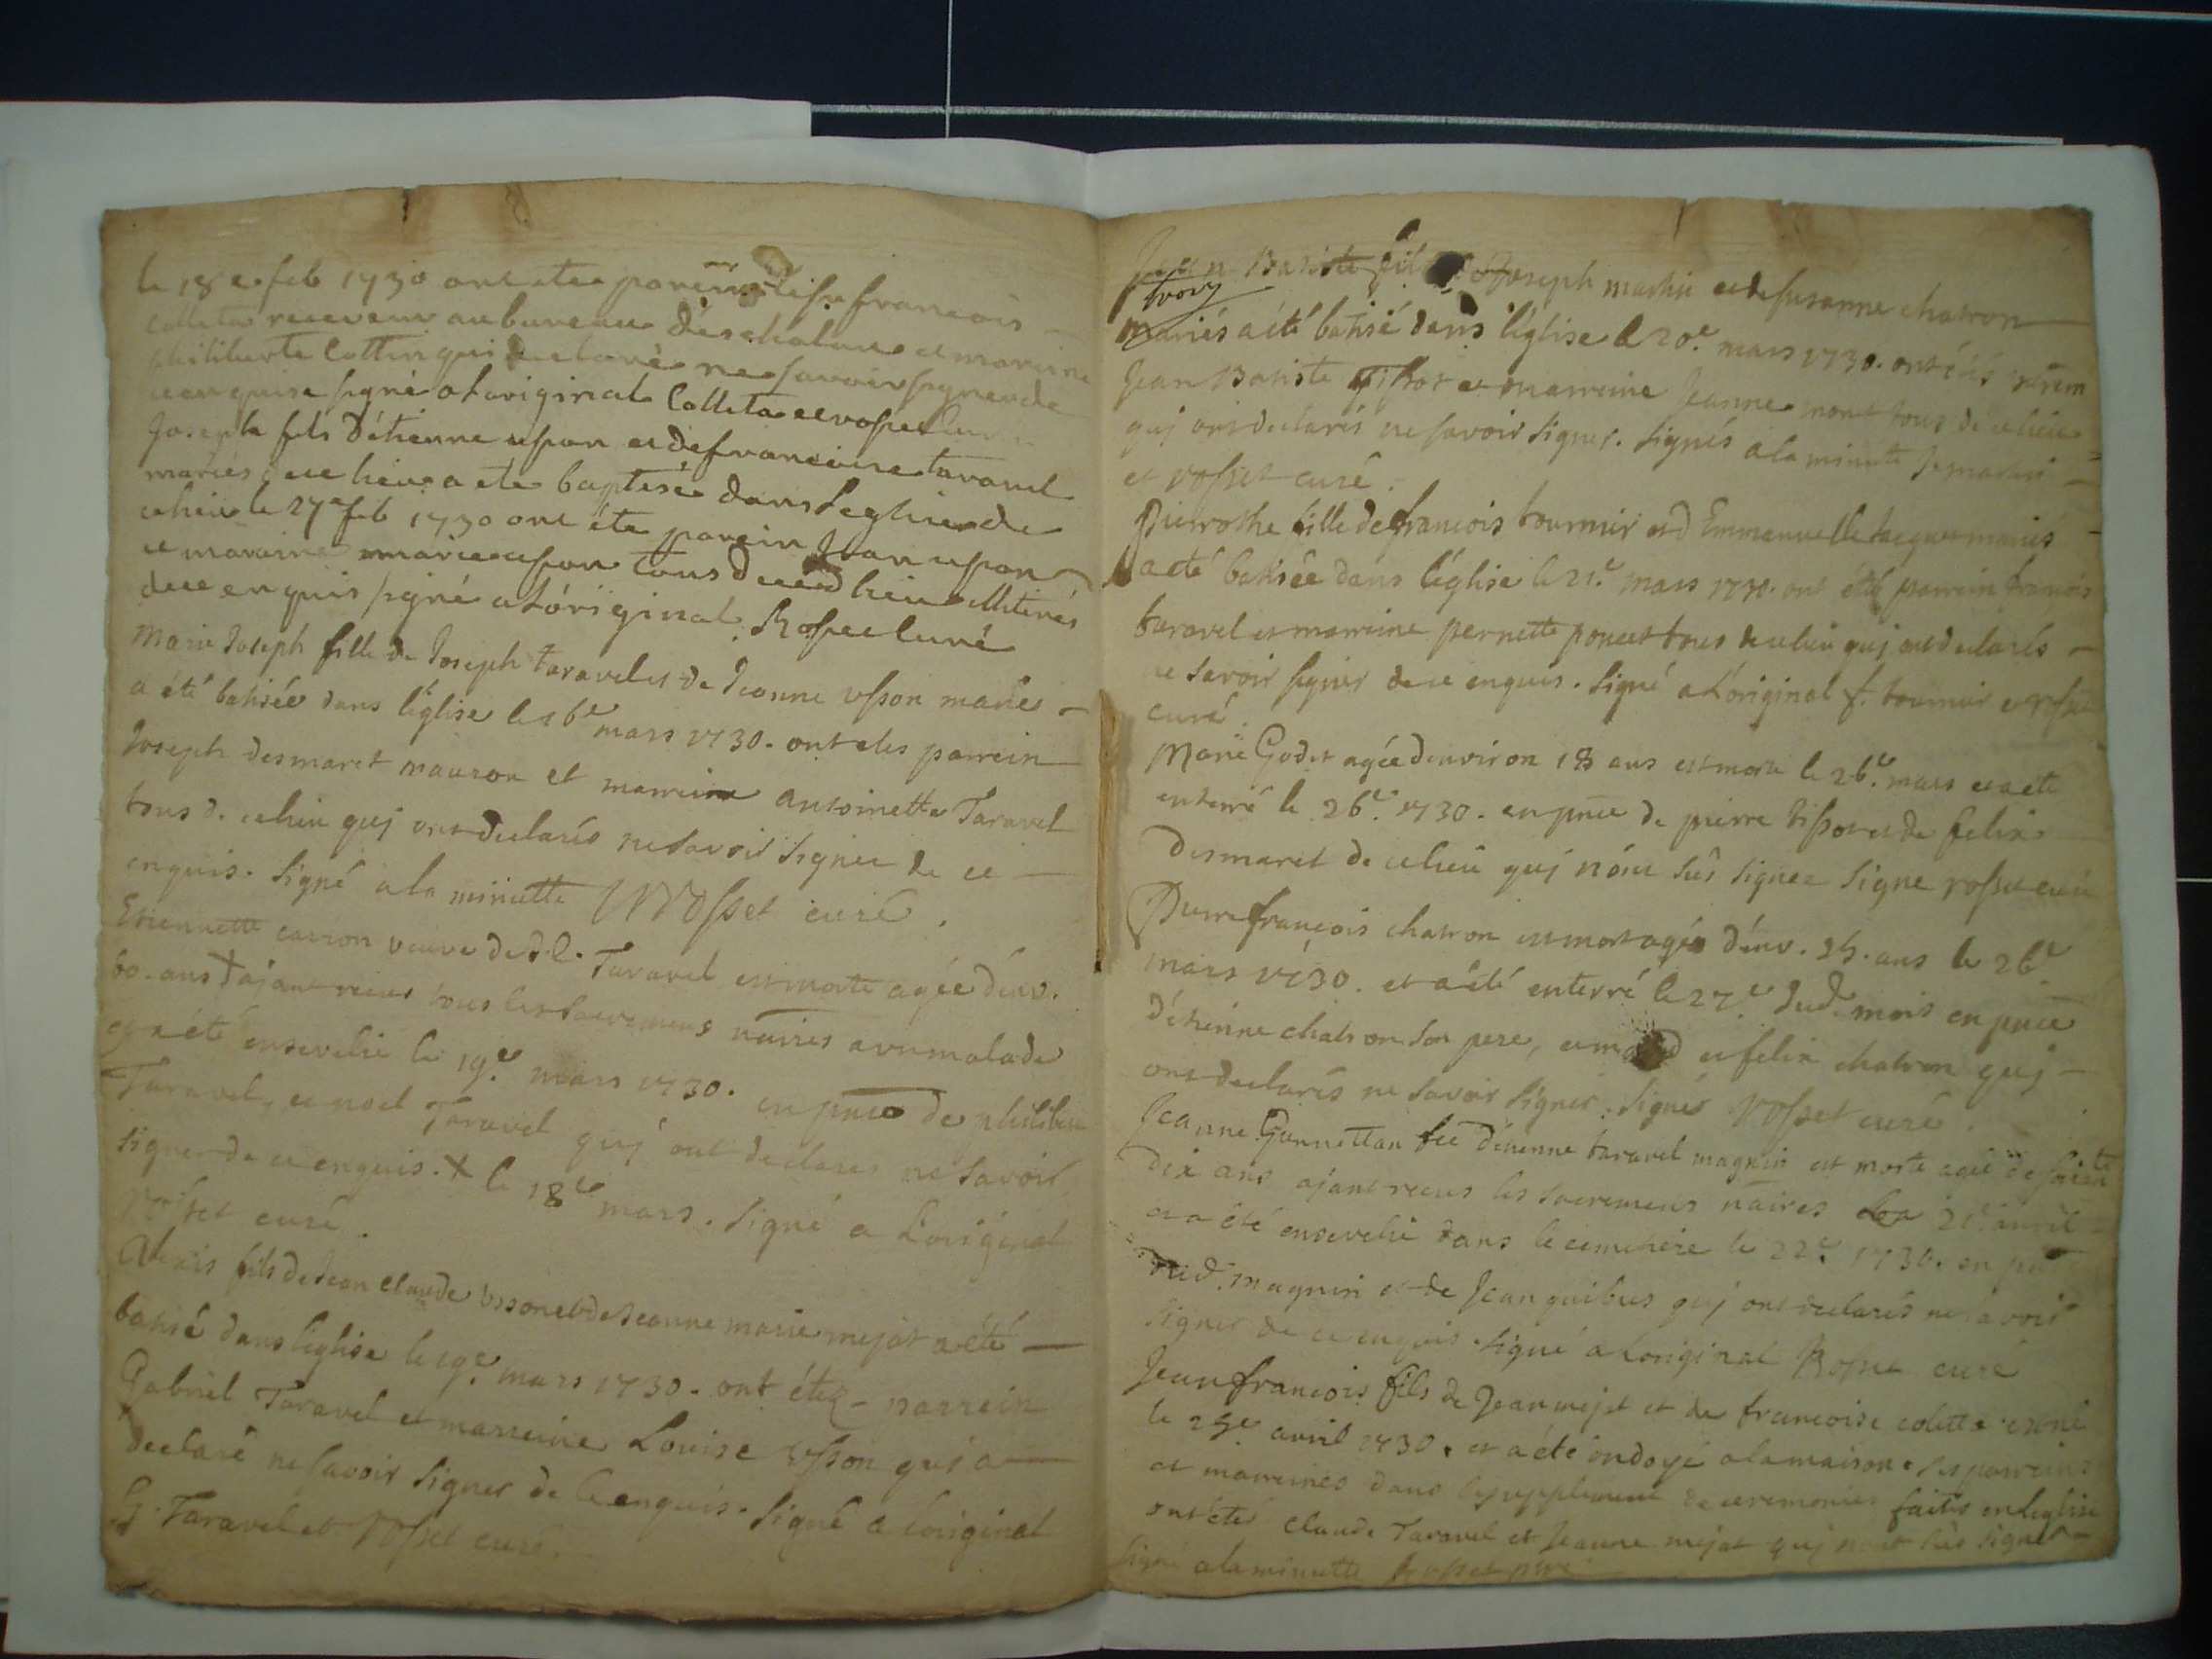 le 18e feb 1730 ont ete parein françois
Colleta receveur au bureau des chalane et maraine
philiberte Cottin qui declaré ne savoir signer de
ce enquise signé a loriginal Colleta et rosset Curé
Joseph fils d'étienne usson et de francoise taravel
mariés ce lieu a ete baptisé dans leglise de
ce lieu le 27e feb 1730 ont éte parein Jean usson
et maraine marie usson tous de ced lieu illiterés
de ce enquis signé a lóriginal. Rosset Curé
Marie Joseph fille de Joseph taravel et de Jeanne usson mariés
a été batisée dans l'église le 16e mars 1730. ont etés parrein
Joseph desmaret mauron et marreine antoinette Taravel
tous de ce lieu qui ont declarés ne savoir signer de ce
enquis. signé a la minutte Rosset curé.
Etiennette carron veuve de Taravel est morte agée d'env.
60. ans + ajant receus tous les sacremens náires a vn malade
et a été ensevelie le 19e. mars 1730. en pnce de philibert
Taravel, et noel Taravel quj ont declares ne savoir
signer de ce enquis. + le 18e mars. signé a L'original
Rosset curé.
Alexis fils de Jean claude Usson et de Jeanne marie mejat a été
batisé dans l'église le 19e. mars 1730. ont étez parrein
Gabriel Taravel et marreine Louise Usson quj a
declaré ne savoir signer de ce enquis. signé a loriginal
G. Taravel et Rosset curé.
Jean Batiste fils de Joseph martin et de susanne chatron
trory
mariés a été batisé dans l'église le 20e. mars 1730. ont étés parrein
Jean Batiste Tissot et marreine Jeanne monet tous de ce lieu
quj ont declarés ne savoir signer. signés a la minutte J martin
et rosset curé.
Pierrothe fille de francois tournier et d Emmanuelle Jacques mariés
a été batisée dans l'église le 21e. mars 1730. ont étés parrein francois
taravel et marreine pernette poncet tous de ce lieu quj ont declarés
ne savoir signer de ce enquis. signé a l'original f. tournier et rosset
curé.
Marie Godet agée denviron 18 ans est morte le 26e. mars et a ete
enterré le 26e. 1730. en pnce de pierre tissot et de felix
Desmaret de ce lieu quj n'ont sús signer signe rosset curé
Pierre françois chatron est mort agés d'env. 25. ans le 26e
mars 1730. et a été enterré le 27e dud. mois en pnce
d'étienne chatron son pere, et felix chatron quj
ont declarés ne savoir signer. signés Rosset curé.
Jeanne Gannettan feé d'étienne taravel magnin est morte agée de soisste
dix ans ajant receus les sacremens náires 21e. avril
et a été ensevelie dans le cimetiere le 22e. 1730. en pnce
dud. magnin et de Jean quibus quj ont declarés ne savoir
signer de ce enquis. signé a Loriginal Rosset curé
Jean francois fils de Jean mejat et de francoise coletta est né
le 25e. avril 1730. et a été ondoyé a la maison. ses parreins
et marreines dans le supplement de ceremonies faites en leglise
ont étés claude Taravel et Jeanne mejat quj n'ont sús signer
signé a la minutte Rosset curé